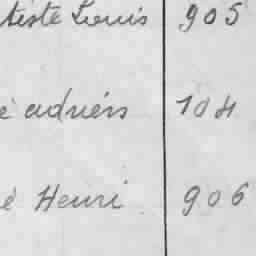 tiste Louis 905
é adriens 104
é Henri 906